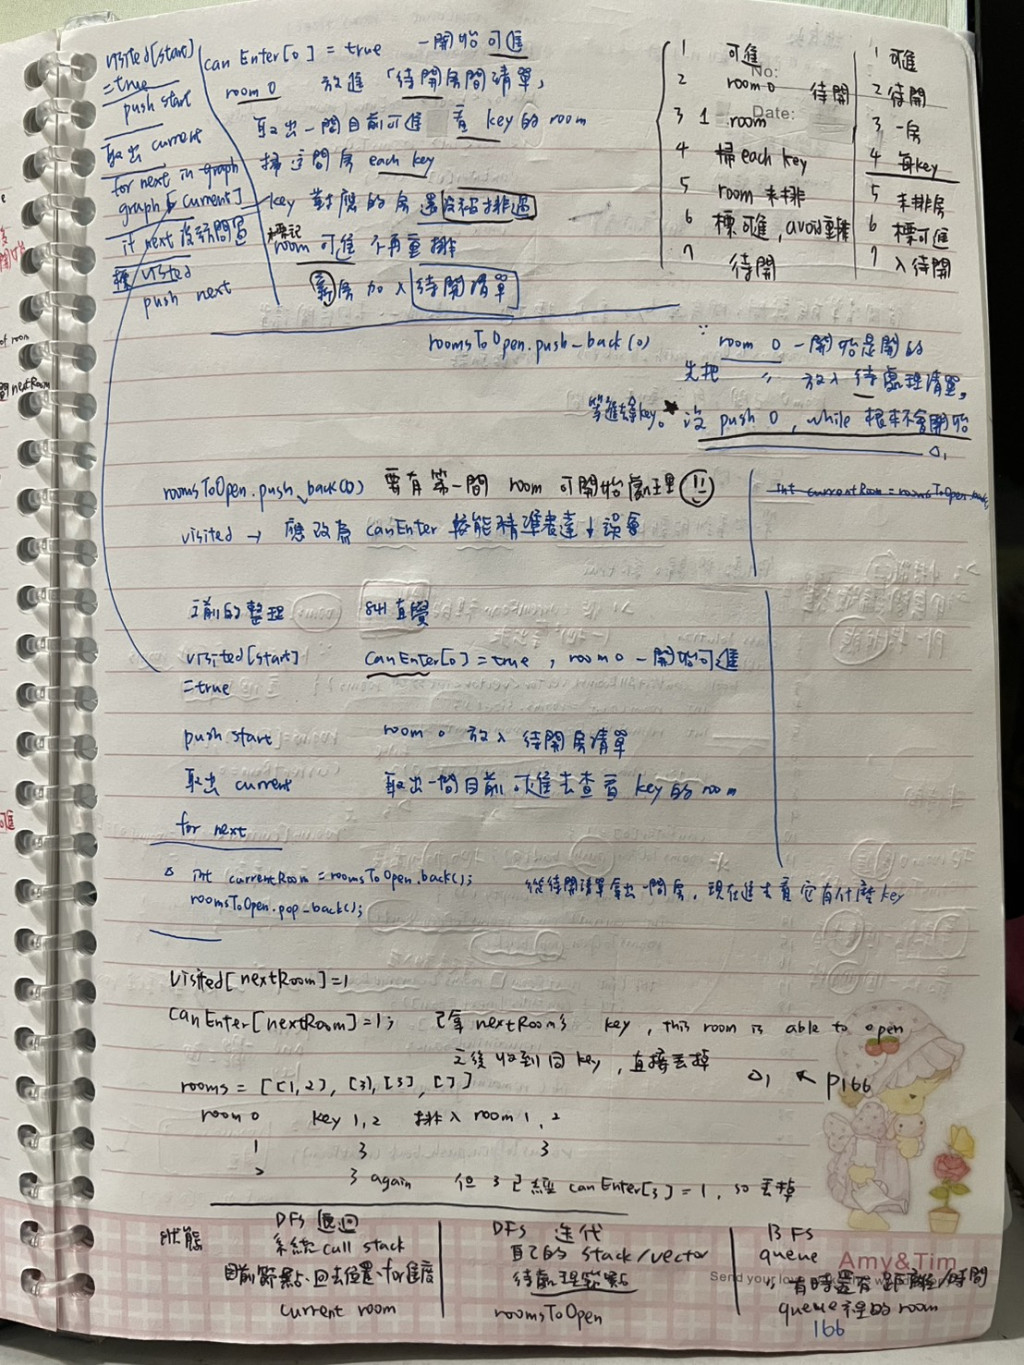 visited[start]
=true
push start
取出 current
for next in graph
graph[current]
if next 沒訪問過
visited
push next
can Enter[0] = true 一開始可進
room 0 放進「待開房間清單」
取出一間目前可進 看 key 的 room
掃這間房 each key
key 對應的房 還沒被排過
標記
room 可進 不再重排
新房加入 待開清單
1 可進
2 room 0 待開
3 1 room
4 掃 each key
5 room 未排
6 標可進, avoid重排
7 待開
No:
Date:
1 可進
2 待開
3 一房
4 每key
5 未排房
6 標可進
7 入待開
roomsToOpen.push_back(0)
∵ room 0 一開始是開的
先把 〃 放入待處理清單,
等進去拿key。★沒 push 0, while 根本不會開始
△1
roomsToOpen.push_back(0) 要有第一間 room 可開始處理
int currentRoom = roomsToOpen.back
visited → 應改為 canEnter 較能精準表達↓誤會
之前的整理 841直覺
visited[start] canEnter[0] = true, room 0 一開始可進
=true
push start room 0 放入 待開房清單
取出 current 取出一間目前可進去查看 key 的 room
for next
△ int currentRoom = roomsToOpen.back(); 從待開清單拿出一間房, 現在進去看它有什麼 key
roomsToOpen.pop_back();
visited[nextRoom]=1
canEnter[nextRoom]=1; 已拿 nextRoom's key, this room is able to open
之後收到同 key, 直接丟掉
△1 ↖ P166
rooms = [[1,2], [3], [3], []]
room 0 key 1, 2 排入 room 1, 2
1 3 3
2 3 again 但 3 已經 canEnter[3] = 1, so 丟掉
狀態
DFS 遞迴
系統 call stack
目前節點、回去位置、for進度
current room
DFS 迭代
自己的 stack/vector
待處理節點
roomsToOpen
BFS
queue
有時還有 距離/時間
queue 裡的 room
Amy&Tim
166